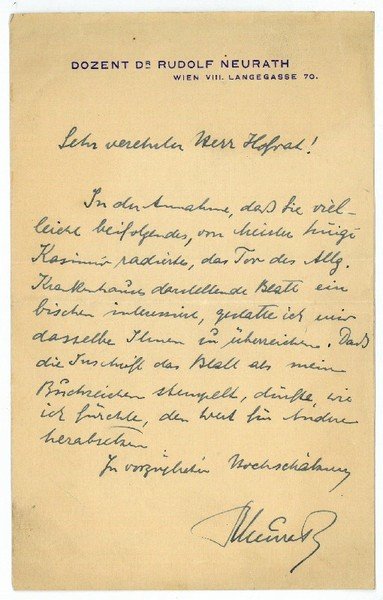 DOZENT DR RUDOLF NEURATH
WIEN VIII. LANGEGASSE 70.
Sehr verehrter Herr Hofrat!
In der Annahme, daß Sie viel-
leicht beifolgendes, von Meister Luigi
Kasimir radierte, das Tor des Allg.
Krankenhauses darstellende Blatt ein
bischen interessire, gestatte ich mir
dasselbe Ihnen zu überreichen. Daß
die Inschrift das Blatt als mein
Buchzeichen stempelt, dürfte, wie
ich fürchte, den Wert für Andere
herabsetzen
In vorzüglicher Hochschätzung
RNeurath